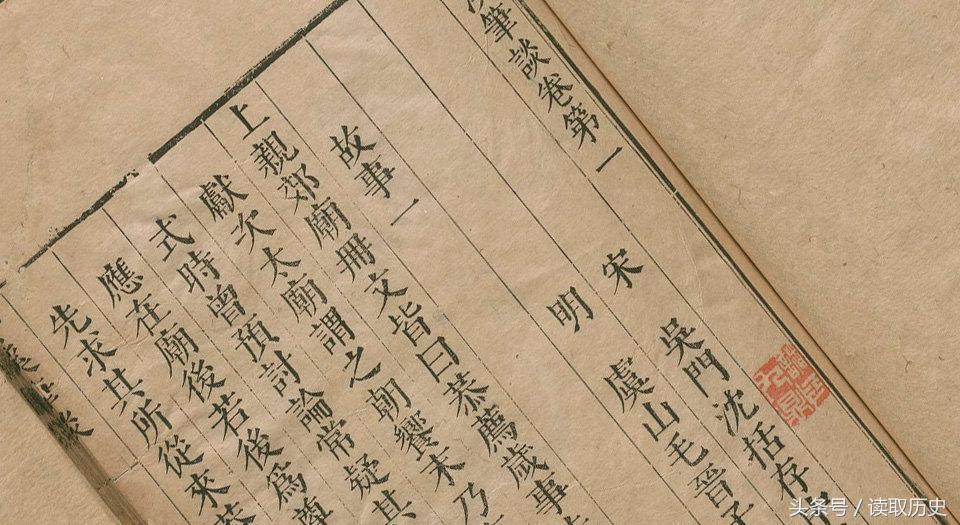 筆談卷第一
宋 吳門沈括存
明 虞山毛晉子
故事一
上親郊廟冊文皆曰恭薦歲事
獻次太廟謂之朝饗末乃
式時曾預討論常疑其
應在廟後若後爲尊
先求其所從來蓋
头条号 / 读取历史